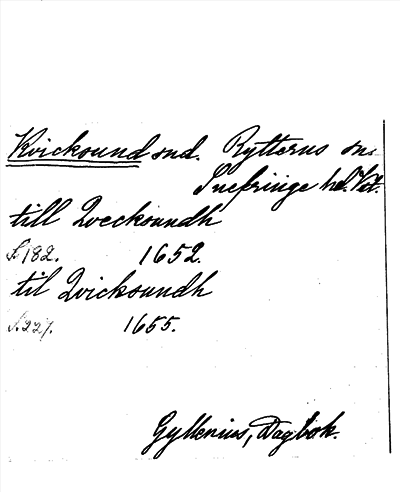 Kvicksund snd. Rytterns sn.
Snefringe hd. Vstm.
till Qvecksundh
S. 182. 1652.
til Qvicksundh
S. 227. 1655.
Gyllenius, Dagbok.